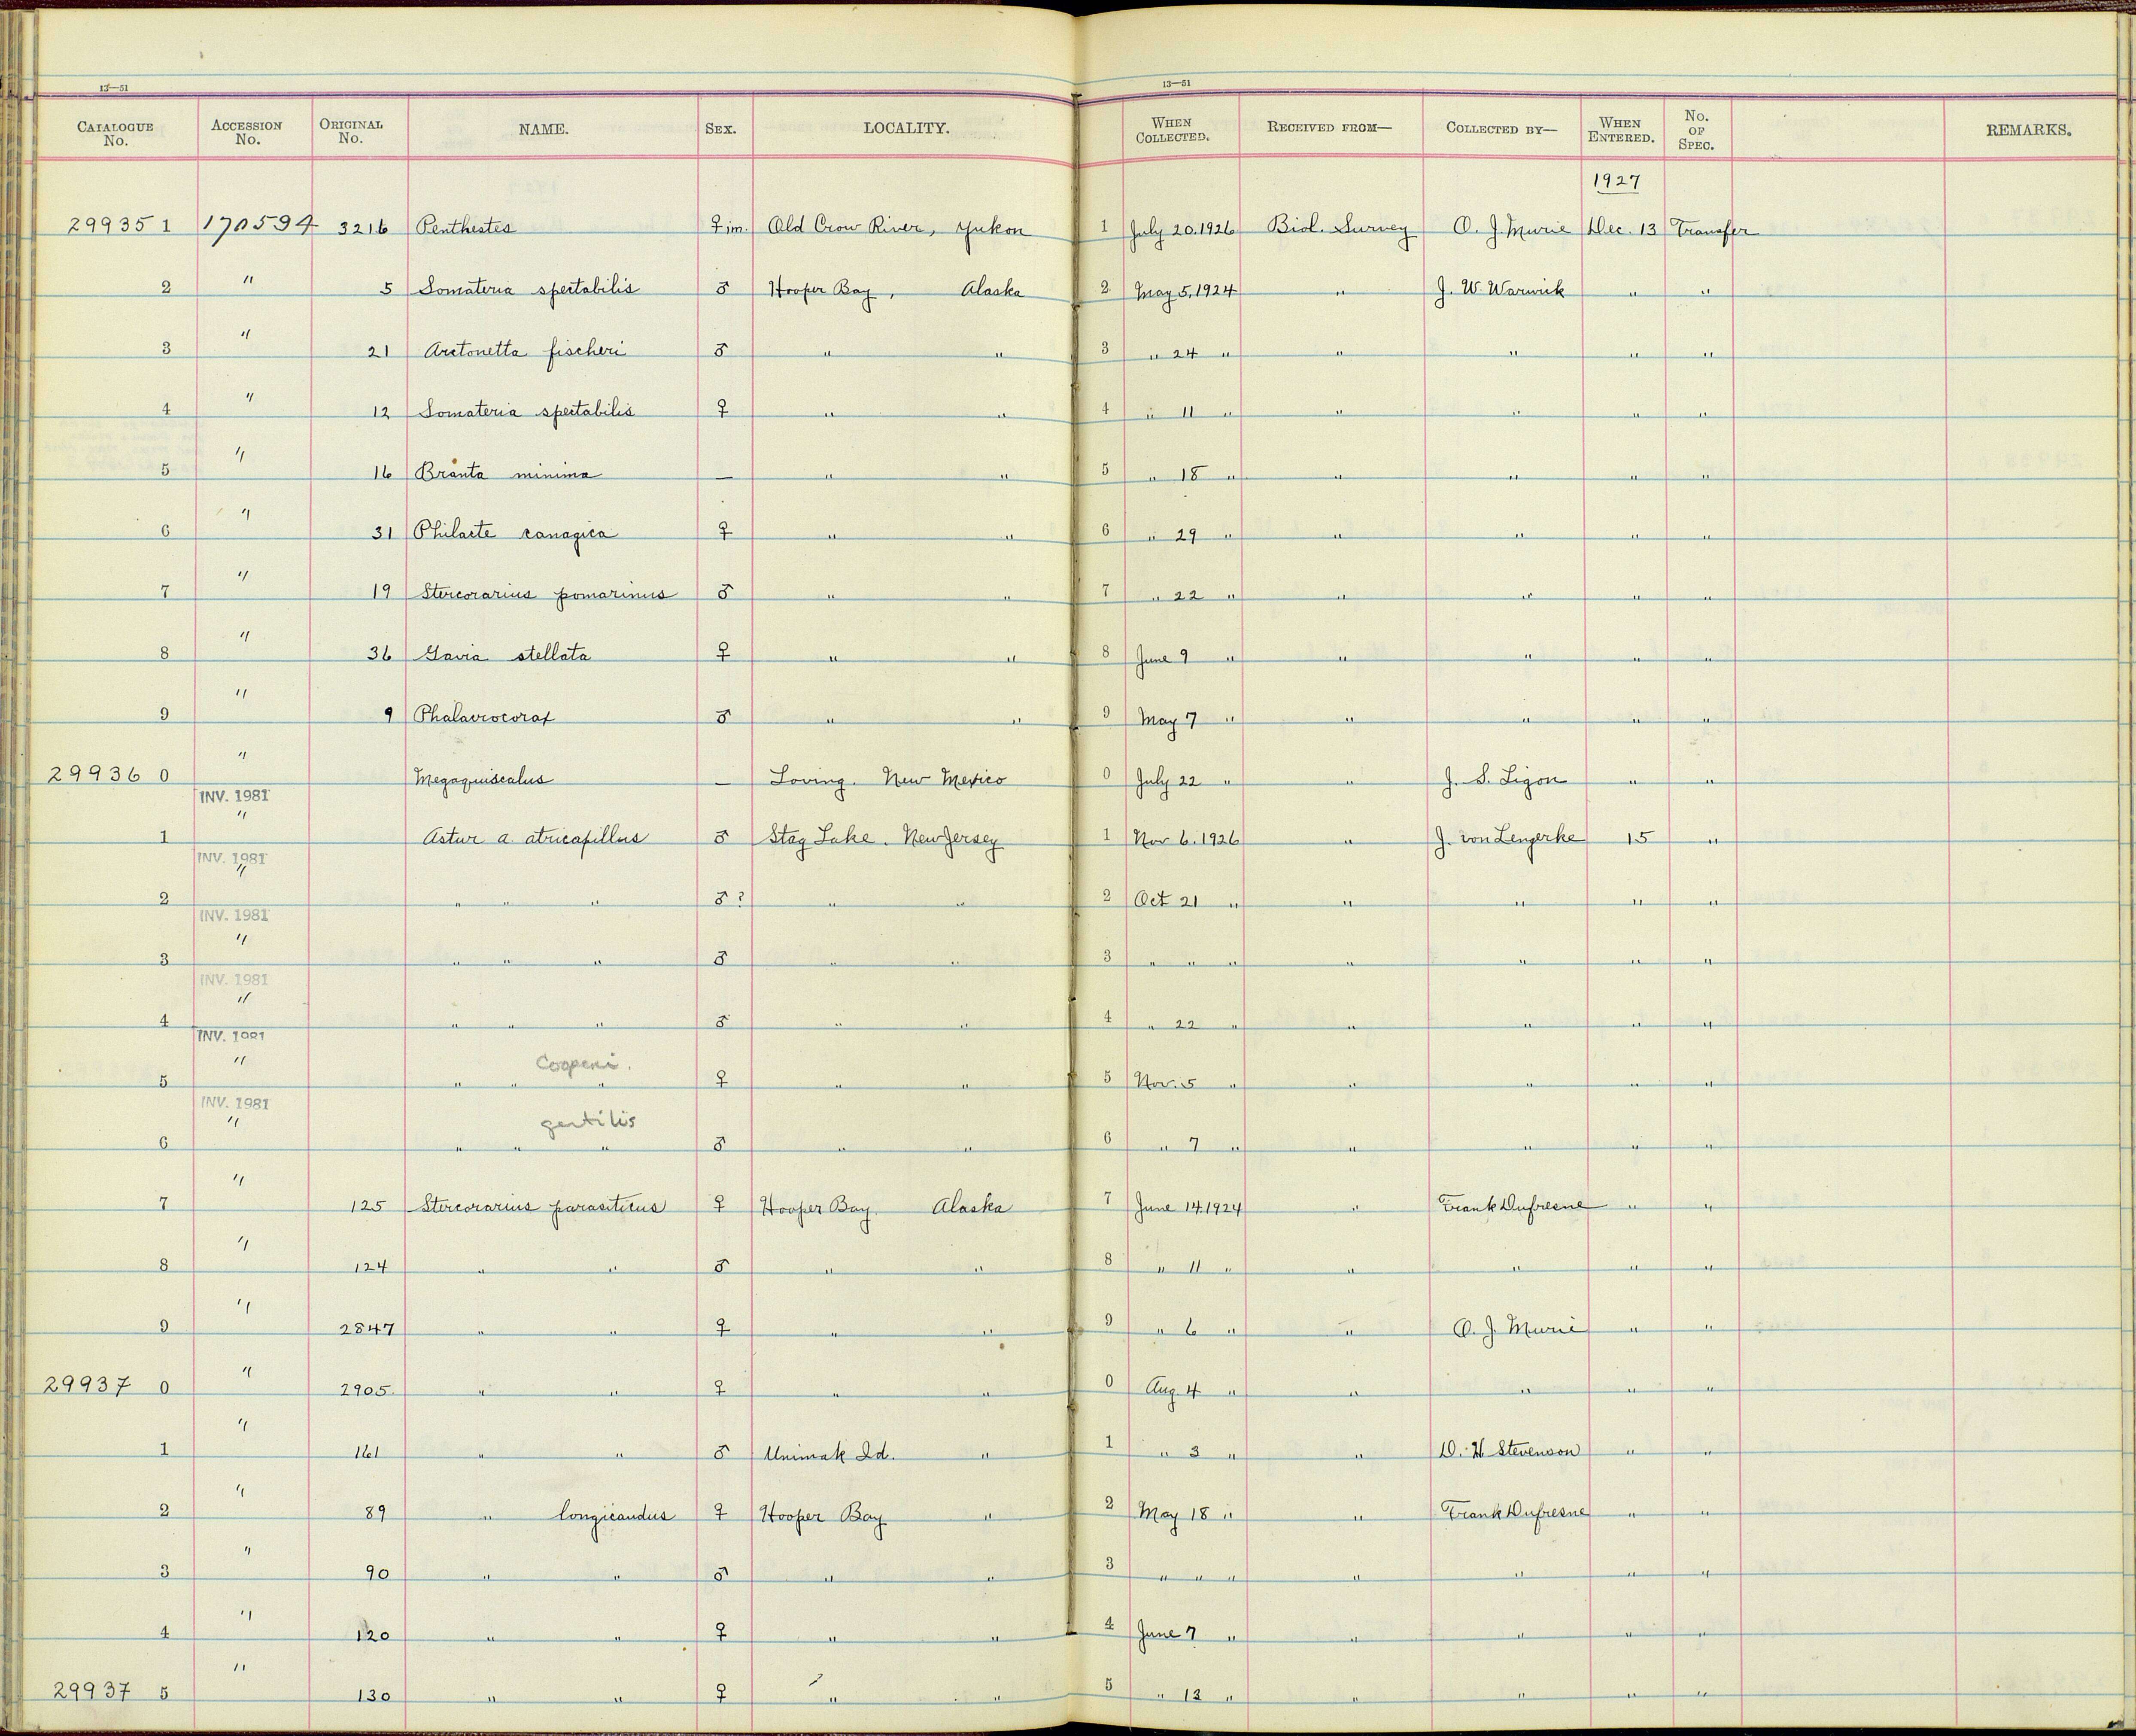 13—51 13—51
CATALOGUE No. ACCESSION No. ORIGINAL No. NAME. SEX. LOCALITY. WHEN COLLECTED. RECEIVED FROM— COLLECTED BY— WHEN ENTERED. No. OF SPEC. REMARKS.
1927
29935 1 170594 3216 Penthestes ♀ im. Old Crow River, Yukon 1 July 20.1926 Biol. Survey O. J. Murie Dec. 13 Transfer
2 " 5 Somateria spectabilis ♂ Hooper Bay, Alaska 2 May 5, 1924 " J. W. Warwick " "
3 " 21 Arctonetta fischeri ♂ " " 3 " 24 " " " " "
4 " 12 Somateria spectabilis ♀ " " 4 " 11 " " " " "
5 " 16 Branta minima — " " 5 " 18 " " " " "
6 " 31 Philacte canagica ♀ " " 6 " 29 " " " " "
7 " 19 Stercorarius pomarinus ♂ " " 7 " 22 " " " " "
8 " 36 Gavia stellata ♀ " " 8 June 9 " " " " "
9 " 9 Phalacrocorax ♂ " " 9 May 7 " " " " "
29936 0 " Megaquiscalus — Loving. New Mexico 0 July 22 " " J. S. Ligon " "
INV. 1981
1 " Astur a. atricapillus ♂ Stag Lake. New Jersey 1 Nov 6.1926 " J. von Lengerke 15 "
INV. 1981
2 " " " " ♂ ? " " 2 Oct 21 " " " " "
INV. 1981
3 " " " " ♂ " " 3 " " " " " " "
INV. 1981
4 " " " " ♂ " " 4 " 22 " " " " "
INV. 1981
Cooperi.
5 " " " " ♀ " " 5 Nov. 5 " " " " "
INV. 1981
gentilis
6 " " " " ♂ " " 6 " 7 " " " " "
7 " 125 Stercorarius parasiticus ♀ Hooper Bay. Alaska 7 June 14.1924 " Frank Dufresne " "
8 " 124 " " ♂ " " 8 " 11 " " " " "
9 " 2847 " " ♀ " " 9 " 6 " " O. J. Murie " "
29937 0 " 2905. " " ♀ " " 0 Aug. 4 " " " " "
1 " 161 " " ♂ Unimak Id. " 1 " 3 " " D. H Stevenson " "
2 " 89 " longicaudus ♀ Hooper Bay " 2 May 18 " " Frank Dufresne " "
3 " 90 " " ♂ " " 3 " " " " " " "
4 " 120 " " ♀ " " 4 June 7 " " " " "
29937 5 " 130 " " ♀ " " 5 " 13 " " " " "